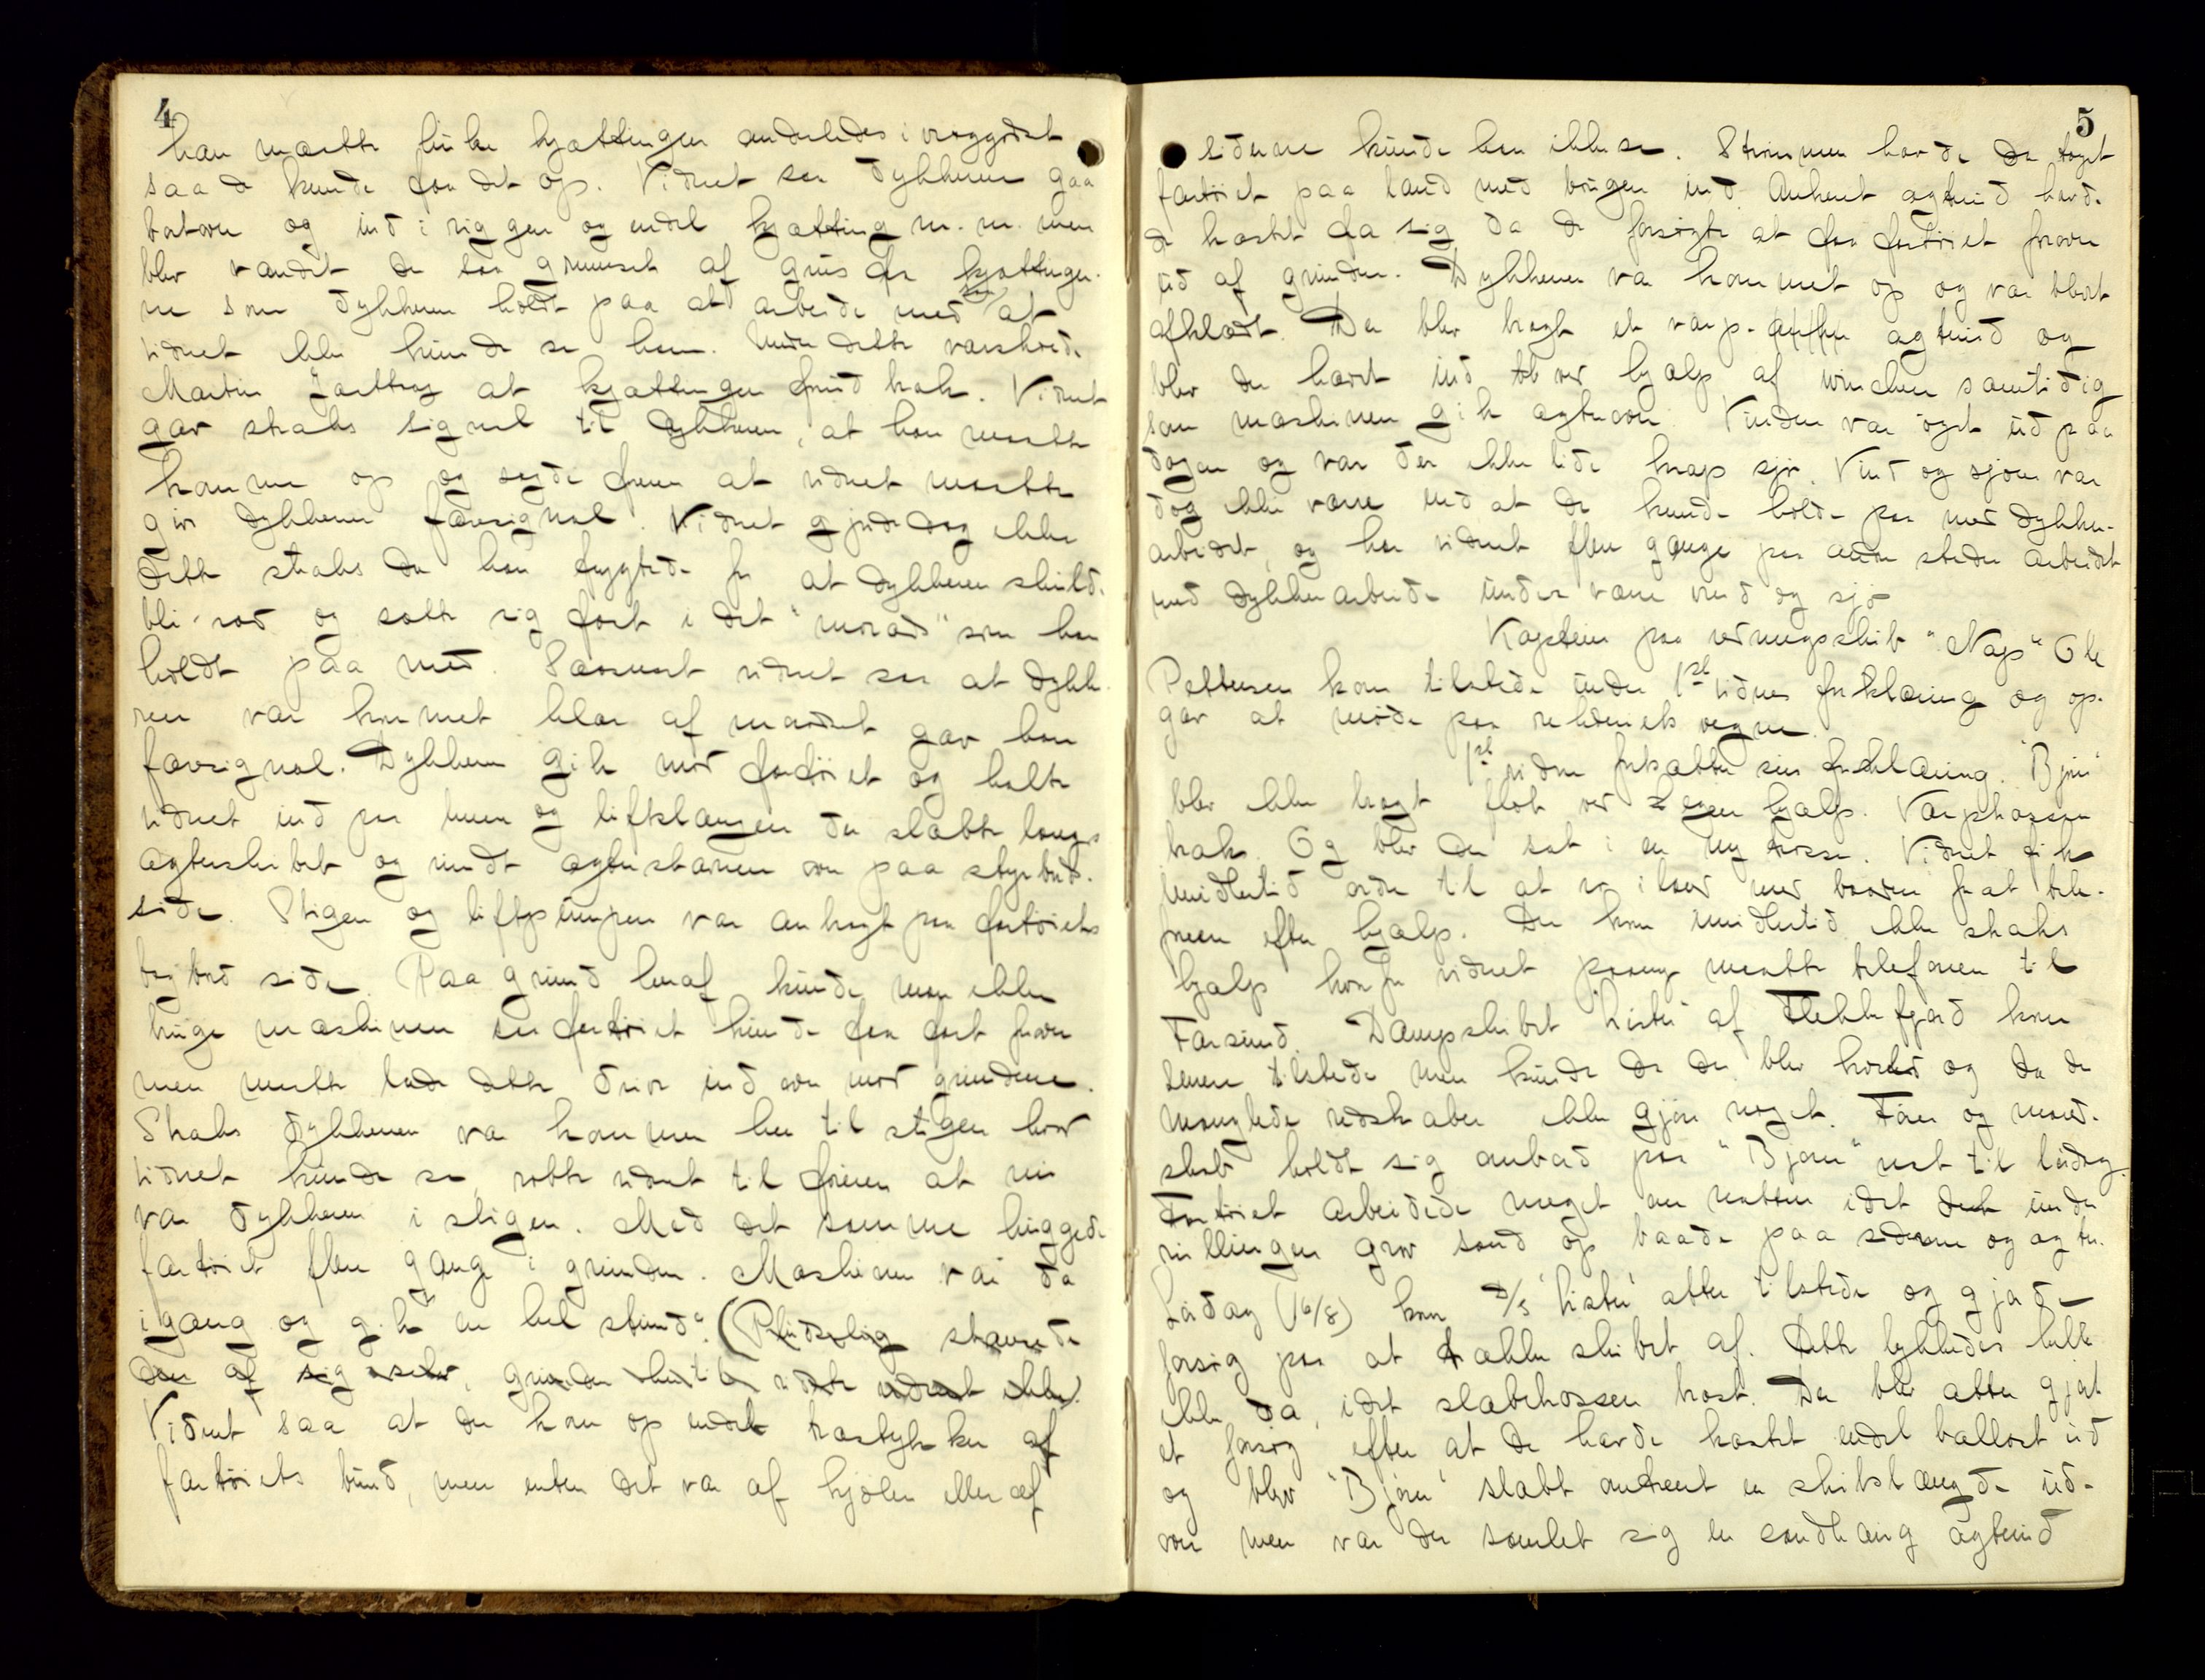 4
han maatte huke kjættingen anderledes i vraggodset
saa de kunde faa det op. Vidnet saa dykkeren gaa
bortover og ind i riggen og endel kjætting m. m. men
blev vandet da saa grumset af grus fra kjættinger-
ne som dykkeren holdt paa at arbeide med at
vidnet ikke kunde se ham. Under dette varskede
Martin at kjættingen forud brak. Vidnet
gav straks signal til dykkeren, at han maatte
komme op og sagde føreren at vidnet maatte
gi dykkeren faresignal. Vidnet gjorde dog ikke
dette straks da han frygtede for at dykkeren skulde
bli ræd og sætte sig fast i det "morads" som han
holdt paa med. Saasnart vidnet saa at dykke-
ren var kommet klar af moradset gav han
faresignal. Dykkeren gik mod fartøiet og halte
vidnet ind paa linen og luftslangen da slæbte langs
agterskibet og rundt agterstavnen over paa styrbords
side. Stigen og luftpumpen var anbragt paa fartøiets
bagbord side. Paa grund heraf kunde man ikke
bruge maskinen saa fartøiet kunde faa fart forover
men maatte lade dette drive ind over mod grundene.
Straks dykkeren var kommen hen til stigen hvor
vidnet kunde se, raabte vidnet til føreren at nu
var dykkeren i stigen. Med det samme huggede
fartøiet flere gange i grunden. Maskinen var da
igang og gik en hel stund. (Pludselig stansede
den af sig selv, grunden hertil vidste vidnet ikke).
Vidnet saa at der kom op endel træstykker af
fartøiets bund, men enten det var af kjølen eller af
5
siderne kunde han ikke se. Strømmen havde da taget
fartøiet paa land med bougen ind. Ankeret agterud havde
de kastet fra sig da de forsøgte at faa fartøiet forover
ud af grunden. Dykkeren var kommet op og var blevet
afklædt. Der blev bragt et varp-anker agterud og
blev der hævet ind ved hjælp af winchen samtidig
som maskinen gik agterover. Vinden var øget ud paa
dagen og var der ikke lidt krap sjø. Vind og sjøen var
dog ikke værre end at de kunde holde paa med dykker-
arbeidet, og har vidnet flere gange paa andre steder arbeidet
med dykkerarbeide under værre vind og sjø
Kaptein paa redningsskib "Nap" Ole
Pettersen kom tilstede under 1ste vidnes forklaring og op-
gav at møde paa rederiets vegne.
1ste vidne fortsatte sin forklaring. "Bjørn"
blev ikke bragt flot ved egen hjælp. Varptrossen
brak. Og blev der sat i en ny trosse. Vidnet fik
imidlertid ordre til at ro iland med baaden for at tele-
fonere efter hjælp. Der kom imidlertid ikke straks
hjælp hvorfor vidnet paany maatte telefonere til
Farsund. Dampskibet "Lister" af Flekkefjord kom
senere tilstede men kunde da der blev kveld og da de
manglede redskaber ikke gjøre noget. Fører og mand-
skab holdt sig ombord paa "Bjørn" nat til lørdag.
Fartøiet arbeidede meget om natten idet det under
rullingen grov sand op baade paa siderne og agter.
Lørdag (16/8) kom D/S "Lister" atter tilstede og gjorde
forsøg paa at trække skibet af. Dette lykkedes heller
ikke da, idet slæbetrossen brast. Der blev atter gjort
et forsøg efter at de havde kastet endel ballast ud
og blev "Bjørn" slæbt omtrent en skibslængde ud-
over men var der samlet sig en sandhaug agterud